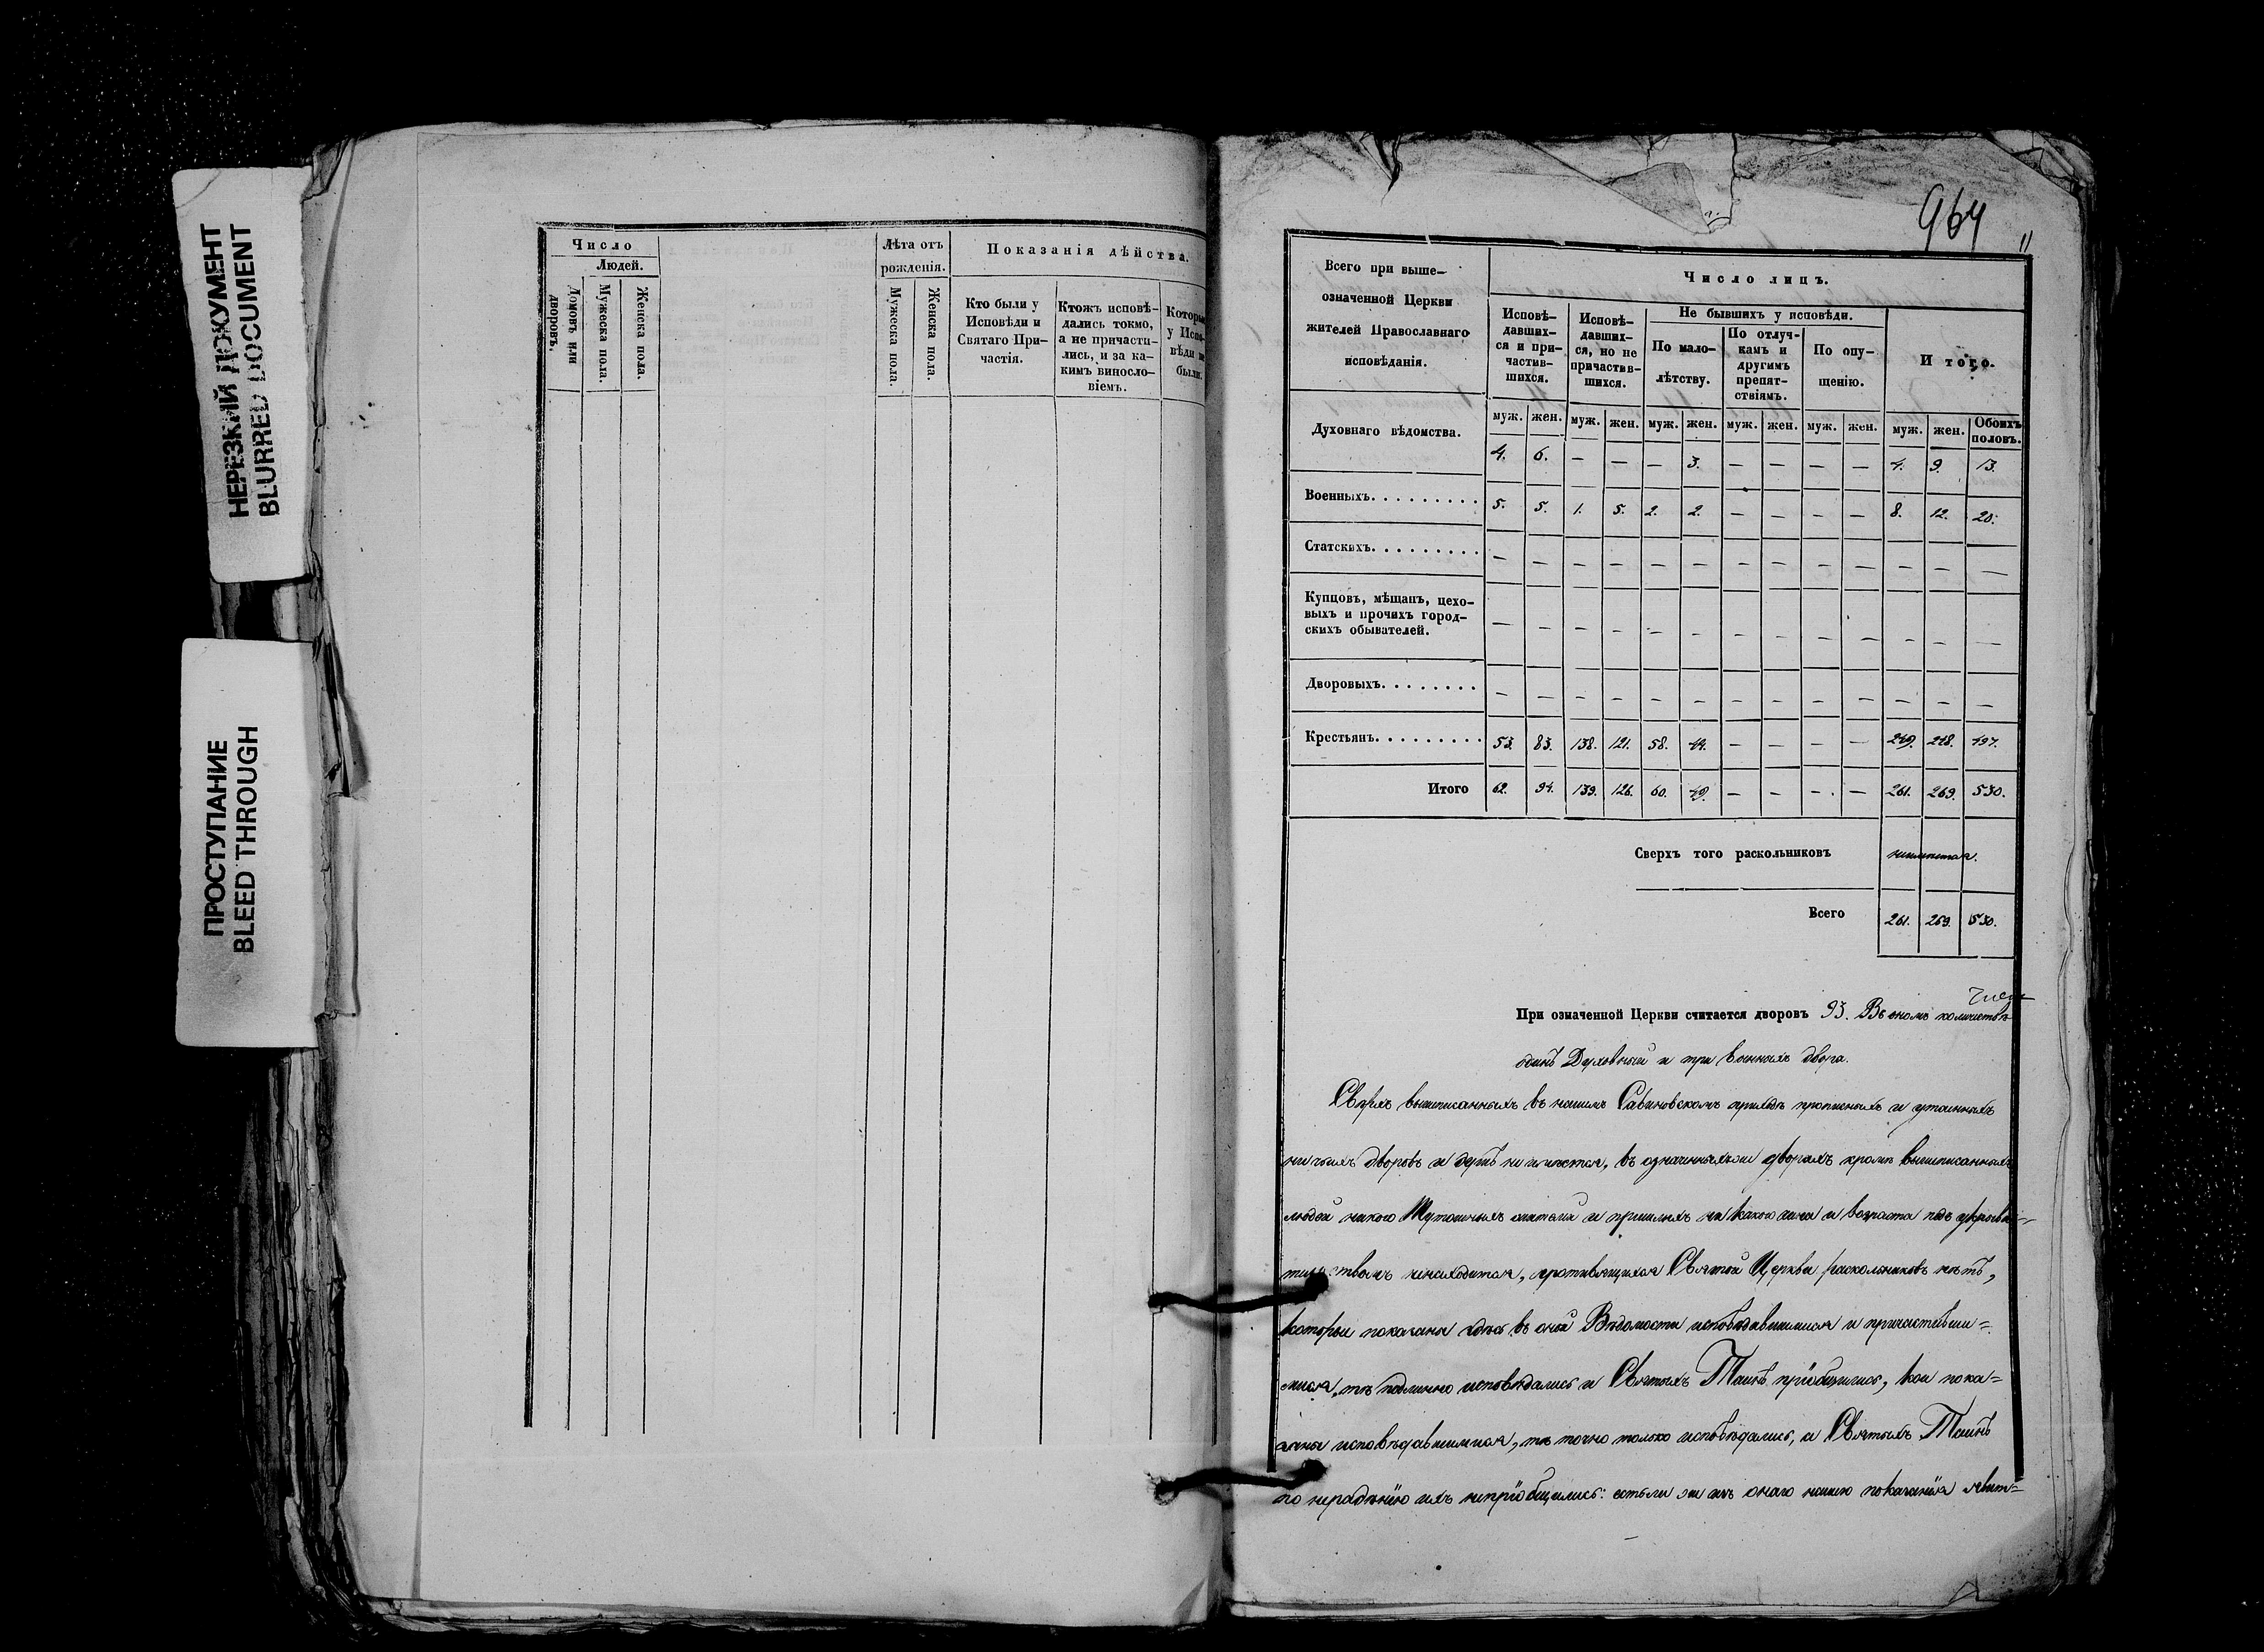 НЕРЕЗКИЙ ДОКУМЕНТ
BLURRED DOCUMENT
ПРОСТУПАНИЕ
BLEED THROUGH
Число
Людей.
Домовъ или дворовъ.
Мужеска пола.
Женска пола.
Лѣта отъ рожденія.
Мужеска пола.
Женска пола.
Показанія дѣйства.
Кто были у
Исповѣди и
Святаго При-
частія.
Ктожъ исповѣ-
дались токмо,
а не причасти-
лись, и за ка-
кимъ винословіемъ.
у Испо-
вѣди не
были.
964
11
Всего при выше-
означенной Церкви
жителей Православнаго
исповѣданія.
Число лицъ.
Исповѣ-
давших-
ся и при-
частив-
шихся.
Исповѣ-
давших-
ся, но не
причастив-
шихся.
Не бывшихъ у исповѣди.
По мало-
лѣтству.
По отлуч-
камъ и
другимъ
препят-
ствіямъ.
По опу-
щенію.
И того.
муж. жен. муж. жен. муж. жен. муж. жен. муж. жен. муж. жен. Обоихъ половъ.
Духовнаго вѣдомства. 4. 6. — — — 3. — — — — 4. 9. 13.
Военныхъ. . . . . . . . . 5. 5. 1. 5. 2. 2. — — — — 8. 12. 20.
Статскихъ. . . . . . . . . — — — — — — — — — — — — —
Купцовъ, мѣщанъ, цехо-
выхъ и прочихъ город-
скихъ обывателей. — — — — — — — — — — — — —
Дворовыхъ. . . . . . . . — — — — — — — — — — — — —
Крестьянъ. . . . . . . . . 53. 83. 138. 121. 58. 44. — — — — 249. 248. 497.
Итого 62. 94. 139. 126. 60. 49. — — — — 261. 269. 530.
Сверхъ того раскольниковъ неимѣется.
Всего 261. 269. 530.
При означенной Церкви считается дворовъ 93. Въ ономъ количествѣ
одинъ Духовный и три военныхъ двора.
Сверхъ вышеписанныхъ въ нашемъ Савиновскомъ приходѣ прописныхъ и утаенныхъ
ни чьихъ дворовъ и душъ не имѣется, въ означенныхъ же дворахъ кромѣ вышеписанныхъ
людей никого тутошныхъ жителей и пришлыхъ ни какого чина и возраста подъ укрыва-
тельствомъ ненаходится, противящихся Святой Церкви раскольниковъ нѣтъ,
которые показаны здѣсь въ оной Вѣдомости исповѣдавшимися и причастивши=
мися, тѣ подлинно исповѣдались и Святыхъ Таинъ пріобщились, кои пока=
заны исповѣдавшимися, тѣ точно только исповѣдались, а Святыхъ Таинъ
по нерадѣнію ихъ непріобщились: естьли же изъ онаго нашего показанія явит=